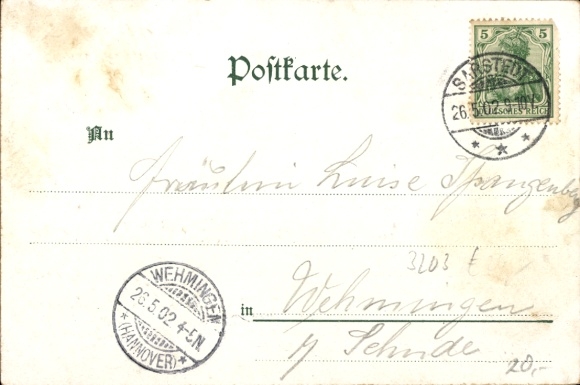 5 5
DEUTSCHES REICH
SARSTEDT
26.5.02.9-10V.
* * *
Postkarte.
An
Fräulein Luise Spangenberg
3203 t
WEHMINGEN
26.5.02 4-5N.
* (HANNOVER) *
in Wehmingen
Sehnde
20,-